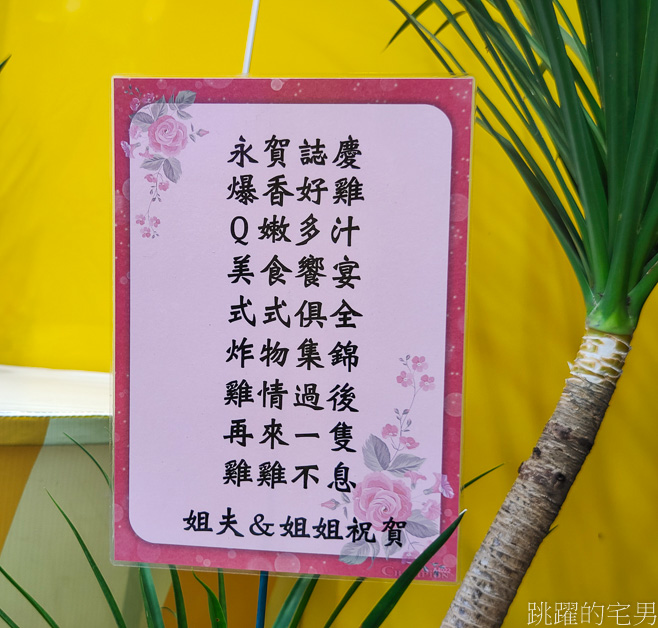 永賀誌慶
爆香好雞
Q嫩多汁
美食饗宴
式式俱全
炸物集錦
雞情過後
再來一隻
雞雞不息
姐夫&姐姐祝賀
跳躍的宅男